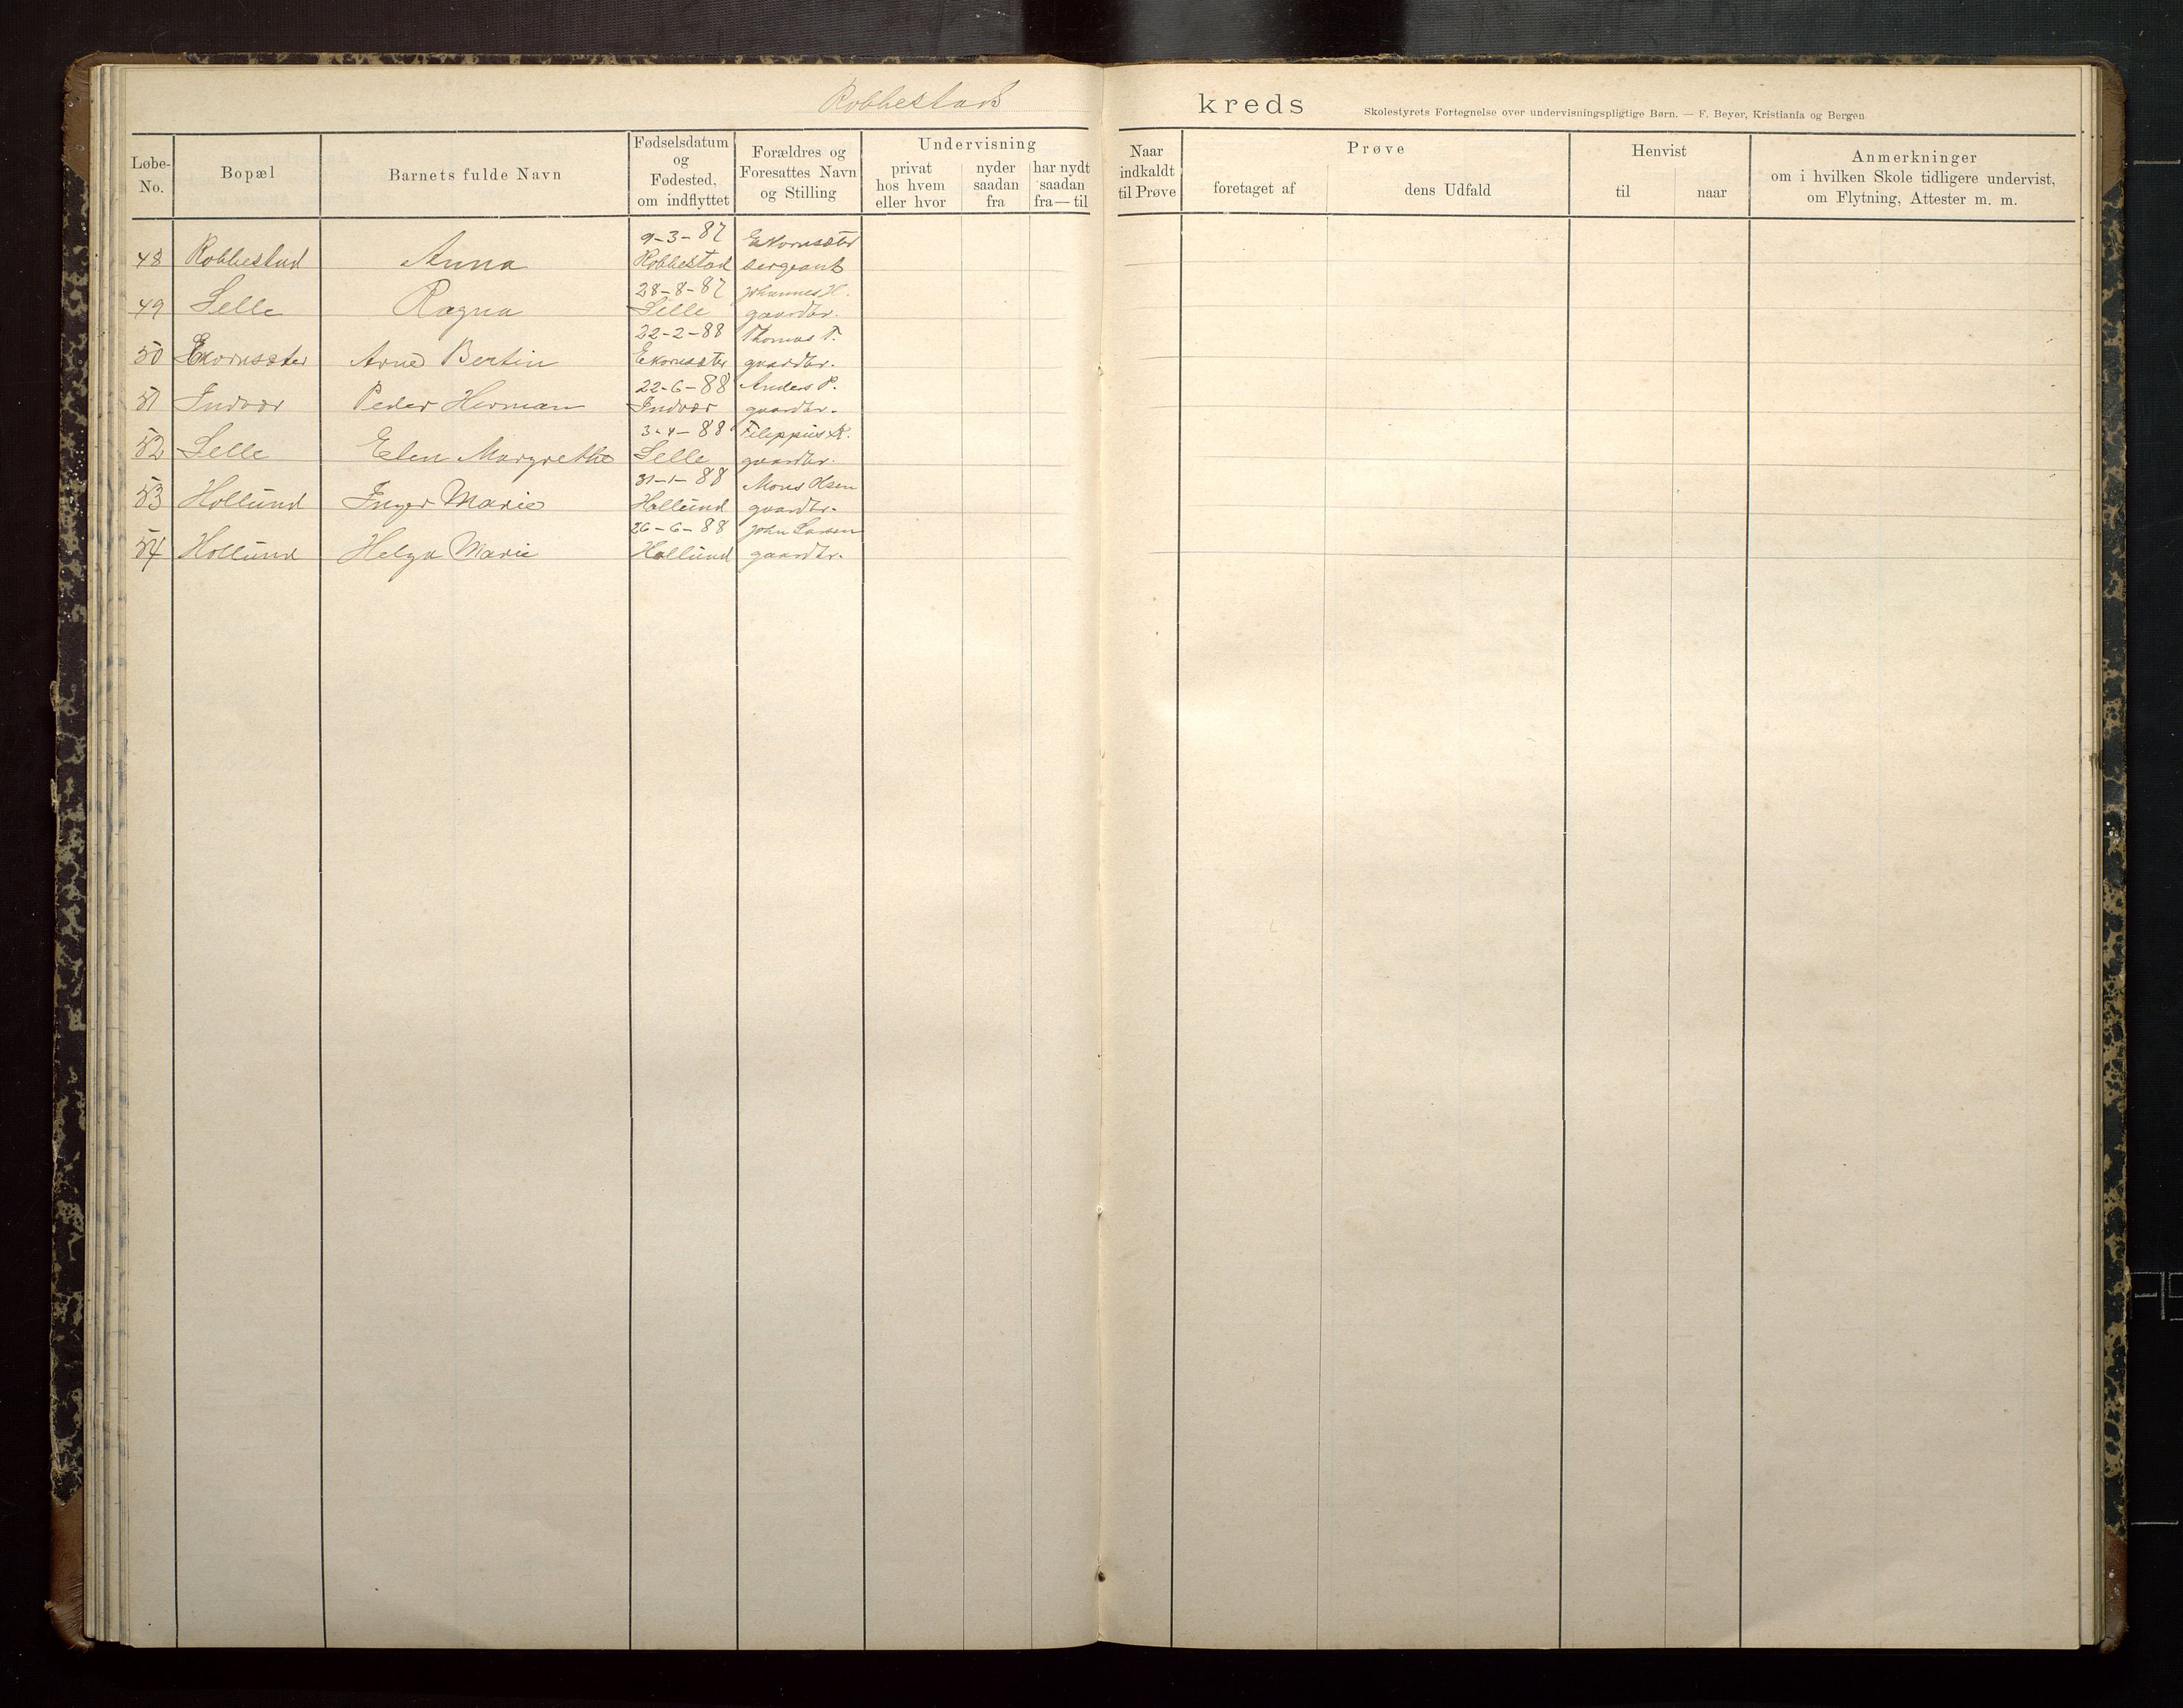 Robbestad kreds
Skolestyrets Fortegnelse over undervisningspligtige Børn. — F. Beyer, Kristiania og Bergen
Løbe-No. Bopæl Barnets fulde Navn Fødselsdatum og Fødested, om indflyttet Forældres og Foresattes Navn og Stilling Undervisning privat hos hvem eller hvor nyder saadan fra har nydt saadan fra—til Naar indkaldt til Prøve Prøve foretaget af dens Udfald Henvist til naar Anmerkninger om i hvilken Skole tidligere undervist, om Flytning, Attester m. m.
9-3-87 Ekornsæter
48 Robbestad Anna Robbestad sergeant
28-8-87 Johannes H.
49 Selle Ragna Selle gaardbr.
22-2-88 Thomas T.
50 Ekornsæter Arne Bertin Ekornsæter gaardbr.
22-6-88 Anders P.
51 Indvær Peder Herman Indvær gaardbr.
3-4-88 Filippus K.
52 Selle Elen Margrethe Selle gaardbr.
31-1-88 Mons Olsen
53 Hollund Inger Marie Hollund gaardbr.
26-6-88 John Larsen
54 Hollund Helga Marie Hollund gaardbr.